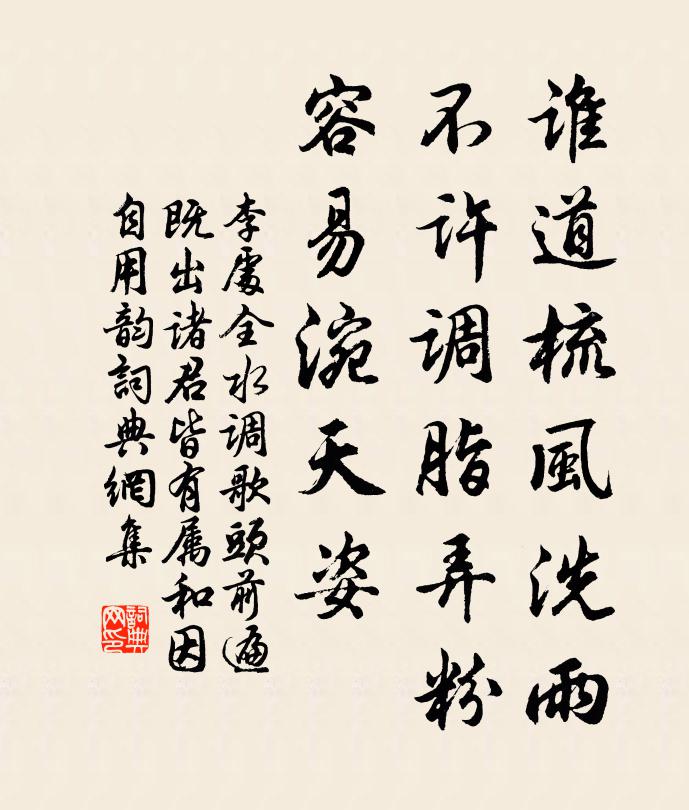 谁道梳風洗雨
不许調脂弄粉
容易涴天姿
李處全水调歌頭前遍
既出诸君皆有属和因
自用韵詞典網集
詞典
网印